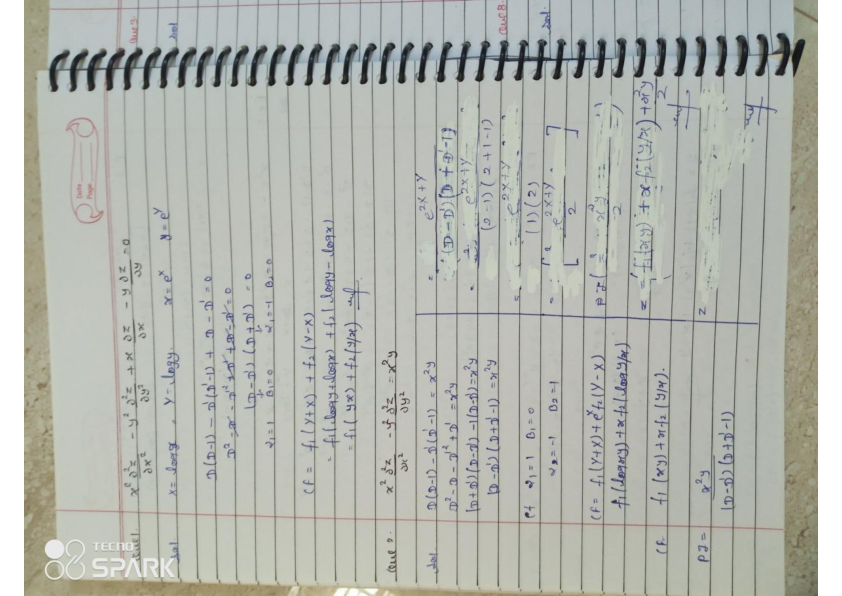 Date
Page
Que1. x² ∂²z/∂x² - y² ∂²z/∂y² + x ∂z/∂x - y ∂z/∂y = 0
Sol x = logx, Y = logy. x = eˣ y = eʸ
D(D-1) - D'(D'-1) + D - D' = 0
D² - D - D'² + D' + D - D' = 0
(D-D') (D+D') = 0
α₁=1 B₁=0 α₁=-1 B₂=0
CF = f₁(Y+X) + f₂(Y-X)
= f₁(logy+logx) + f₂(logy-logx)
= f₁(yx) + f₂(y/x)
Que 2. x² ∂²z/∂x² - y² ∂²z/∂y² = x²y
Sol D(D-1) - D'(D'-1) = x²y
D² - D - D'² + D' = x²y
(D+D')(D-D') - 1(D-D') = x²y
(D-D') (D+D'-1) = x²y
α₁=1 B₁=0
α₂=-1 B₂=1
CF = f₁(Y+X) + eˣ f₂(Y-X)
f₁(logxy) + x f₂(log y/x)
CF f₁(xy) + x f₂(y/x).
PI = x²y / (D-D') (D+D'-1)
= e^(2X+Y) / (D-D') (D+D'-1)
= e^(2X+Y) / (2-1) (2+1-1)
= e^(2X+Y) / (1)(2)
= [ e^(2X+Y) / 2 ]
PI = x²y / 2
z = f₁(xy) + x f₂(y/x) + x²y / 2
z
Que
Sol
Que 8.
Sol.
TECNO
SPARK